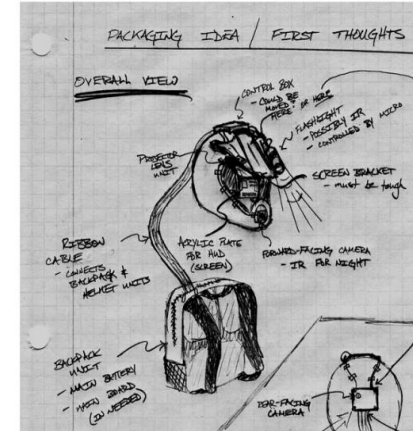 PACKAGING IDEA / FIRST THOUGHTS
OVERALL VIEW
CONTROL BOX
- COULD BE
MOVED?
HERE? OR HERE?
FLASHLIGHT
- POSSIBLY IR
- CONTROLLED BY MICRO
PROJECTOR
LENS
UNIT
SCREEN BRACKET
- must be tough
RIBBON
CABLE
- CONNECTS
BACKPACK &
HELMET UNITS
ACRYLIC PLATE
FOR HUD
(SCREEN)
FORWARD-FACING CAMERA
- IR FOR NIGHT
BACKPACK
UNIT
- MAIN BATTERY
- MAIN BOARD
(IF NEEDED)
REAR-FACING
CAMERA